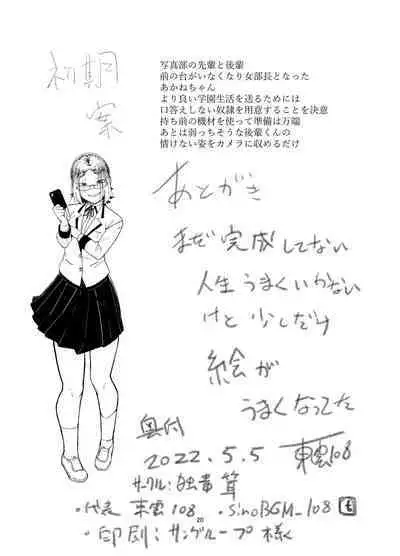 初期
案
写真部の先輩と後輩
前の台がいなくなり女部長となった
あかねちゃん
より良い学園生活を送るためには
口答えしない奴隷を用意することを決意
持ち前の機材を使って準備は万端
あとは弱っちそうな後輩くんの
情けない姿をカメラに収めるだけ
あとがき
まだ完成してない
人生うまくいかない
けど少しだけ
絵が
うまくなってた
東雲108
奥付
2022.5.5
サークル:
・代表 東雲108 ・SinoBGM_108
・印刷:サングループ様
20